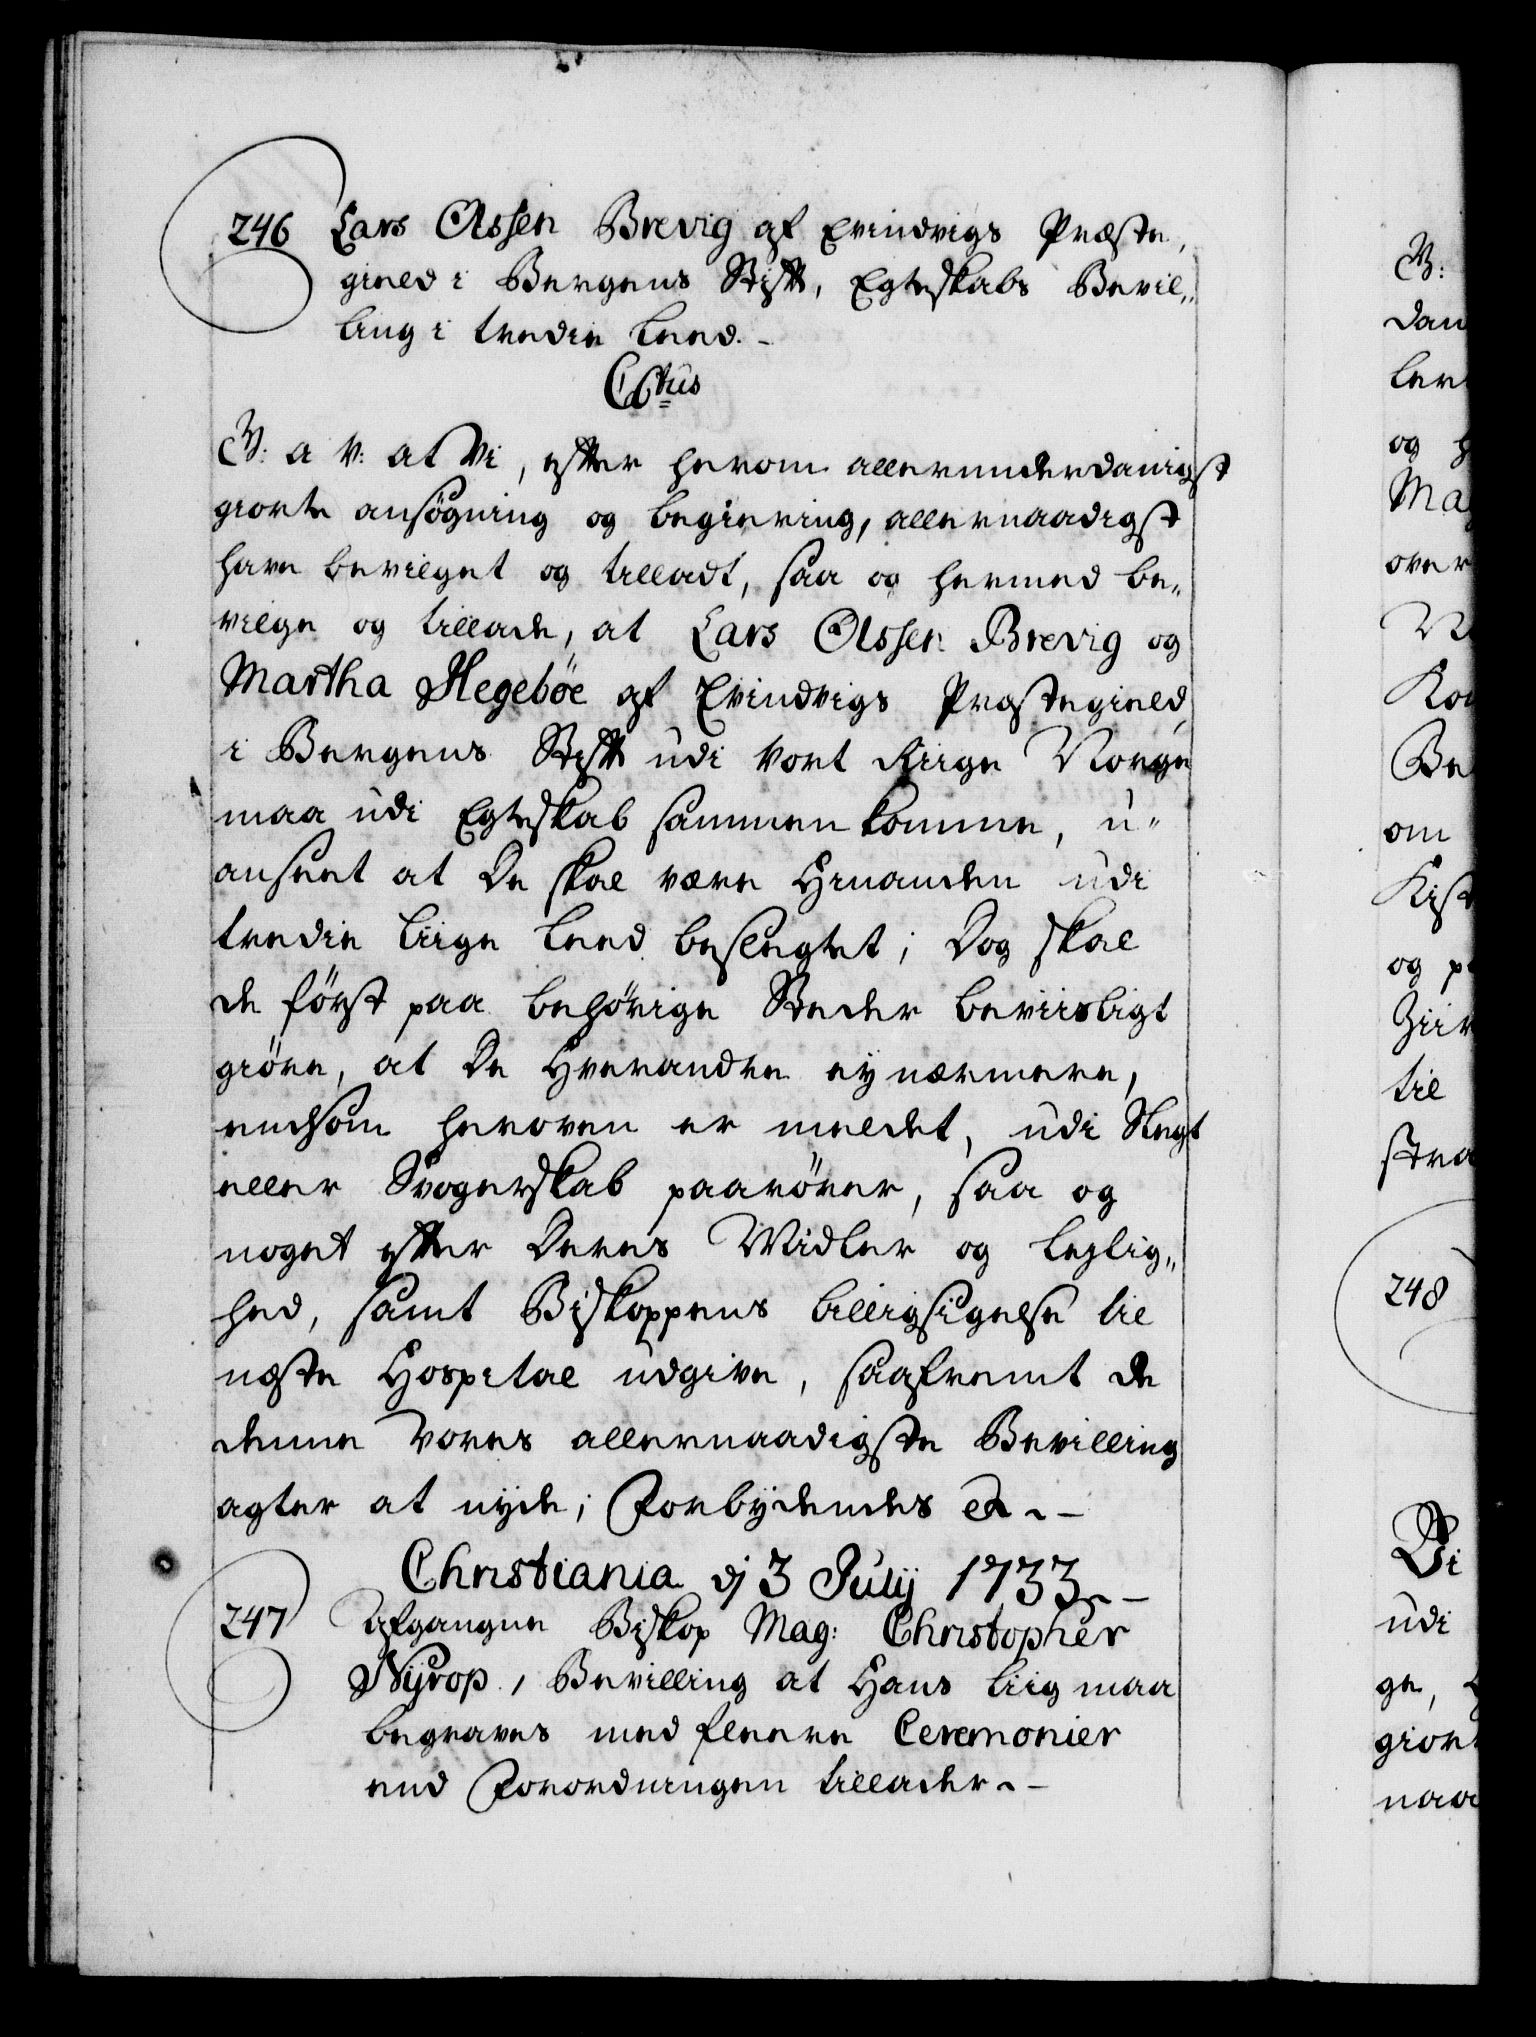 246 Lars Olssen Brevig af Evindvigs Præste,
gield i Bergens Stift, Egteskabs Bevil„
ling i tredie Leed. –
C6tus
V: a V: at Vi, efter herom allerunderdanigst
giorte ansøgning og begiering, allernaadigst
have bevilget og tilladt, saa og hermed be„
vilge og tillade, at Lars Olssen Brevig og
Martha Hegeböe af Evindvigs Præstegield
i Bergens Stift udi Vort Riige Norge
maa udi Egteskab sammen komme, u„
anseet at De skal være Hinanden udi
tredie liige Leed beslegtet; Dog skal
de först paa behörige Steder beviisligt
giöre, at De Hverandre ey nærmere,
endsom heroven er meldet, udi Slegt
eller Svogerskab paarörer, saa og
noget efter Deres Midler og Leylig„
hed, samt Biskoppens billigsigelse til
neste Hospital udgive, saafremt de
denne Vores allernaadigste Bevilling
agter at nyde; Forbydendes et. –
Christiania dj 3 Julij 1733. –
247 Afgangne Biskop Mag: Christopher
Nyrop, Bevilling at Hans Liig maa
begraves med fleere Ceremonier
end Forordningen tillader. –
V:
dan
og
Ma
over
Be
om
Kist
og p
til
stra
248
Vi
udi
ge,
giort
naa